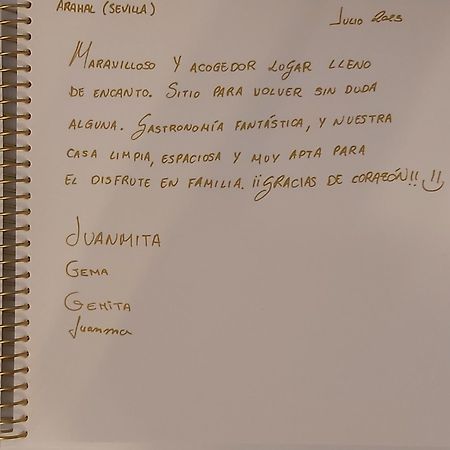 ARAHAL (SEVILLA)
JULIO 2023
MARAVILLOSO Y ACOGEDOR LUGAR LLENO
DE ENCANTO. SITIO PARA VOLVER SIN DUDA
ALGUNA. GASTRONOMÍA FANTÁSTICA, Y NUESTRA
CASA LIMPIA, ESPACIOSA Y MUY APTA PARA
EL DISFRUTE EN FAMILIA. ¡¡GRACIAS DE CORAZÓN!!
JUANMITA
GEMA
GEMITA
Juanma